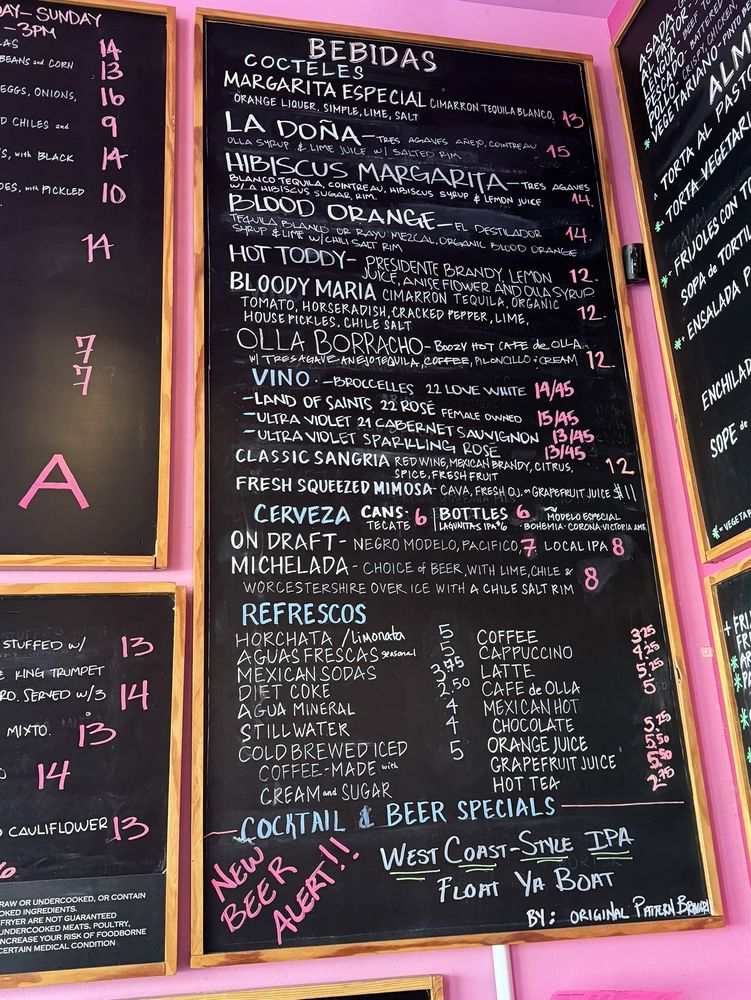 AY-SUNDAY
-3PM
LAS 14
BEANS and CORN 13
EGGS, ONIONS, 16
D CHILES and 9
S, with BLACK 14
OES, with PICKLED 10
14
7
7
A
STUFFED w/ 13
KING TRUMPET
RO. SERVED w/3 14
MIXTO. 13
O 14
O CAULIFLOWER 13
RAW OR UNDERCOOKED, OR CONTAIN
OKED INGREDIENTS.
FRYER ARE NOT GUARANTEED
UNDERCOOKED MEATS, POULTRY,
INCREASE YOUR RISK OF FOODBORNE
CERTAIN MEDICAL CONDITION
BEBIDAS
COCTELES
MARGARITA ESPECIAL CIMARRON TEQUILA BLANCO,
ORANGE LIQUER, SIMPLE, LIME, SALT 13
LA DOÑA - TRES AGAVES AÑEJO, COINTREAU
OLLA SYRUP & LIME JUICE w/ SALTED RIM 15
HIBISCUS MARGARITA - TRES AGAVES
BLANCO TEQUILA, COINTREAU, HIBISCUS SYRUP & LEMON JUICE
W/ A HIBISCUS SUGAR RIM. 14.
BLOOD ORANGE - EL DESTILADOR
TEQUILA BLANCO OR RAYU MEZCAL, ORGANIC BLOOD ORANGE
SYRUP & LIME W/CHILI SALT RIM 14.
HOT TODDY - PRESIDENTE BRANDY, LEMON
JUICE, ANISE FLOWER AND OLLA SYRUP 12.
BLOODY MARIA CIMARRON TEQUILA, ORGANIC
TOMATO, HORSERADISH, CRACKED PEPPER, LIME,
HOUSE PICKLES, CHILE SALT 12.
OLLA BORRACHO - BOOZY HOT CAFE de OLLA.
W/ TRES AGAVE ANEJO TEQUILA, COFFEE, PILONCILLO & CREAM 12
VINO. - BROCCELLES 22 LOVE WHITE 14/45
- LAND OF SAINTS 22 ROSÉ FEMALE OWNED 15/45
- ULTRA VIOLET 21 CABERNET SAUVIGNON 13/45
- ULTRA VIOLET SPARILLING ROSÉ 13/45
CLASSIC SANGRIA RED WINE, MEXICAN BRANDY, CITRUS,
SPICE, FRESH FRUIT 12
FRESH SQUEEZED MIMOSA - CAVA, FRESH O.J. or GRAPEFRUIT JUICE $11
CERVEZA CANS- TECATE 6 | BOTTLES 6 MODELO ESPECIAL
LAGUNITAS IPA BOHEMIA · CORONA · VICTORIA AMB.
ON DRAFT - NEGRO MODELO, PACIFICO, 7 LOCAL IPA 8
MICHELADA - CHOICE of BEER, WITH LIME, CHILE &
WORCESTERSHIRE OVER ICE WITH A CHILE SALT RIM 8
REFRESCOS
HORCHATA /Limonata 5
AGUAS FRESCAS seasonal 5
MEXICAN SODAS 3.75
DIET COKE 2.50
AGUA MINERAL 4
STILL WATER 4
COLD BREWED ICED 5
COFFEE-MADE with
CREAM and SUGAR
COFFEE 3.25
CAPPUCCINO 4.25
LATTE 5.25
CAFE de OLLA 5
MEXICAN HOT
CHOCOLATE 5.75
ORANGE JUICE 5.50
GRAPEFRUIT JUICE 5.50
HOT TEA 2.75
COCKTAIL & BEER SPECIALS
NEW
BEER
ALERT!!
WEST COAST-STYLE IPA
FLOAT YA BOAT
BY: ORIGINAL PATTERN BREWERY
ASADA-
PASTOR-
LENGUA- BEEF
PESCADO- BATTERED
POLLO- CRISPY, CHICKEN,
* VEGETARIANO- PINTO
ALM
TORTA AL PAST
* TORTA VEGETARI
* FRIJOLES CON T
SOPA de TORTIL
* ENSALADA
ENCHILAD
SOPE de
* = VEGETAR
+ FRI